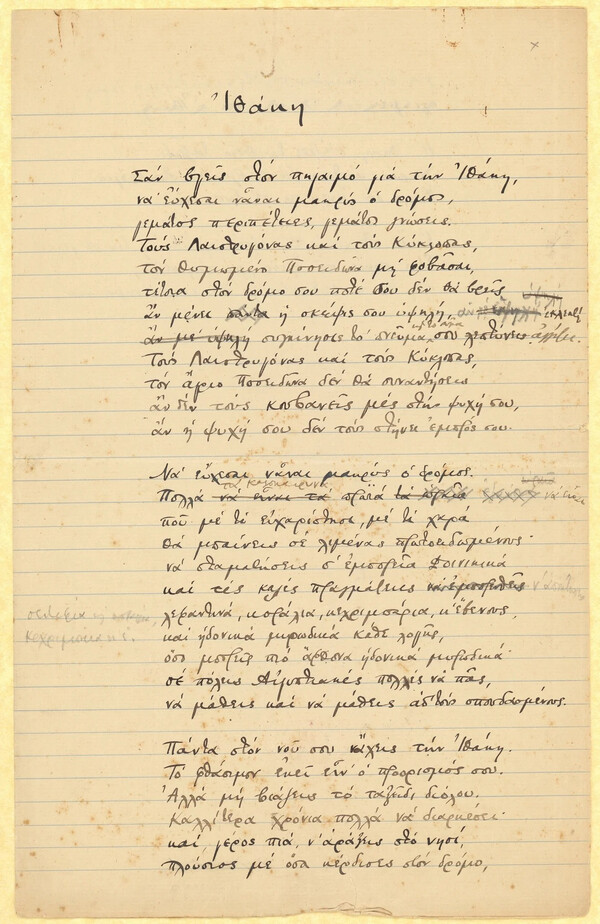 Ἰθάκη
Σάν βγεῖς στόν πηγαιμό γιά τήν Ἰθάκη,
νά εὔχεσαι νἆναι μακρύς ὁ δρόμος,
γεμάτος περιπέτειες, γεμάτος γνώσεις.
Τούς Λαιστρυγόνας καί τούς Κύκλωπας,
τόν θυμωμένο Ποσειδῶνα μή φοβᾶσαι,
τέτοια στόν δρόμο σου ποτέ σου δέν θά βρεῖς
ἄν μένει πάντα ἡ σκέψις σου ὑψηλή, ἄν ἐκλεκτή
ἄν μέ ὑψηλή συγκίνησις τό πνεῦμα σου ἀγγίζει.
Τούς Λαιστρυγόνας καί τούς Κύκλωπας,
τόν ἄγριο Ποσειδῶνα δέν θά συναντήσεις
ἄν δέν τούς κουβανεῖς μές στήν ψυχή σου,
ἄν ἡ ψυχή σου δέν τούς στήνει ἐμπρός σου.
Νά εὔχεσαι νἆναι μακρύς ὁ δρόμος.
τά καλοκαιρινά
Πολλά νά εἶναι τά πρωϊά νά εἶναι
πού μέ τί εὐχαρίστησι, μέ τί χαρά
θά μπαίνεις σέ λιμένας πρωτοειδωμένους·
νά σταματήσεις σ' ἐμπορεῖα Φοινικικά
καί τές καλές πραγμάτειες
σεντέφια
κεχριμπάρια κ
λεχαντινά, κοράλια, κεχριμπάρια, κ' ἔβενους,
καί ἡδονικά μυρωδικά κάθε λογῆς,
ὅσο μπορεῖς πιό ἄφθονα ἡδονικά μυρωδικά·
σέ πόλεις Αἰγυπτιακές πολλές νά πᾶς,
νά μάθεις καί νά μάθεις ἀπ' τούς σπουδασμένους.
Πάντα στόν νοῦ σου νἄχεις τήν Ἰθάκη.
Τό φθάσιμον ἐκεῖ εἶν' ὁ προορισμός σου.
Ἀλλά μή βιάζεις τό ταξεῖδι διόλου.
Καλλίτερα χρόνια πολλά νά διαρκέσει·
καί, γέρος πιά, ν' ἀράξεις στό νησί,
πλούσιος μέ ὅσα κέρδισες στόν δρόμο,